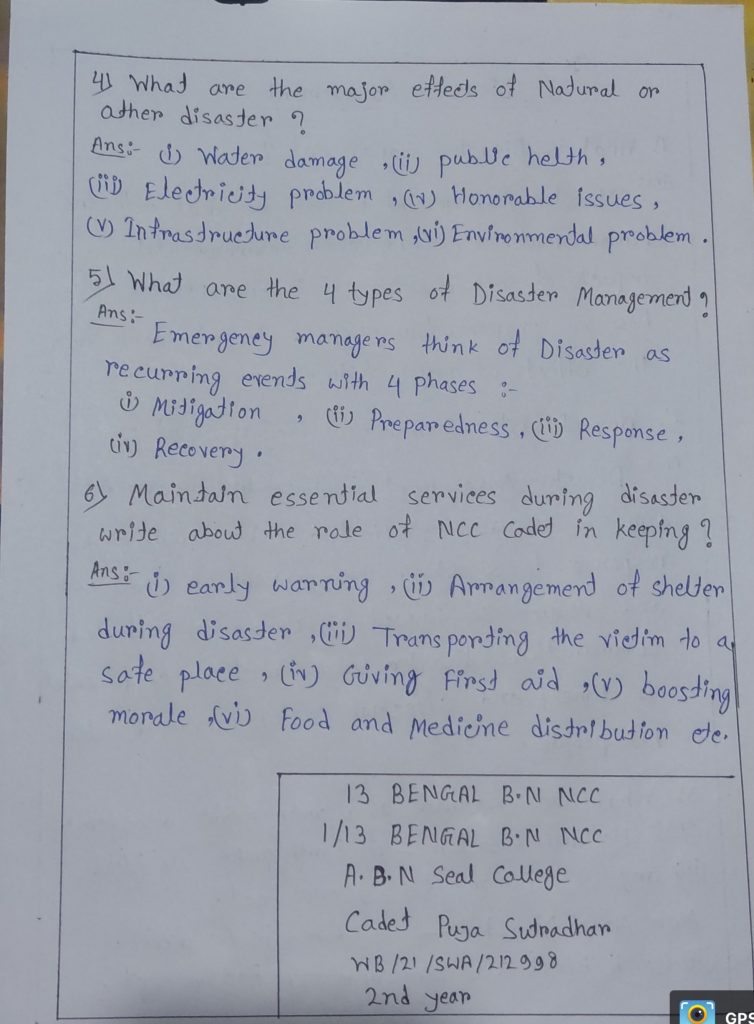 4) What are the major effects of Natural or
other disaster ?
Ans:- (i) Water damage , (ii) public helth ,
(iii) Electricity problem , (iv) Honorable issues ,
(v) Infrastructure problem , (vi) Environmental problem .
5) What are the 4 types of Disaster Management ?
Ans:-
Emergency managers think of Disaster as
recurring events with 4 phases :-
(i) Mitigation , (ii) Preparedness , (iii) Response ,
(iv) Recovery .
6) Maintain essential services during disaster
write about the role of NCC Cadet in keeping ?
Ans:- (i) early warning , (ii) Arrangement of shelter
during disaster , (iii) Transporting the victim to a
safe place , (iv) Giving First aid , (v) boosting
morale , (vi) Food and Medicine distribution etc.
13 BENGAL B.N NCC
1/13 BENGAL B.N NCC
A.B.N Seal College
Cadet Puja Sutradhar
WB/21/SWA/212998
2nd year
GPS